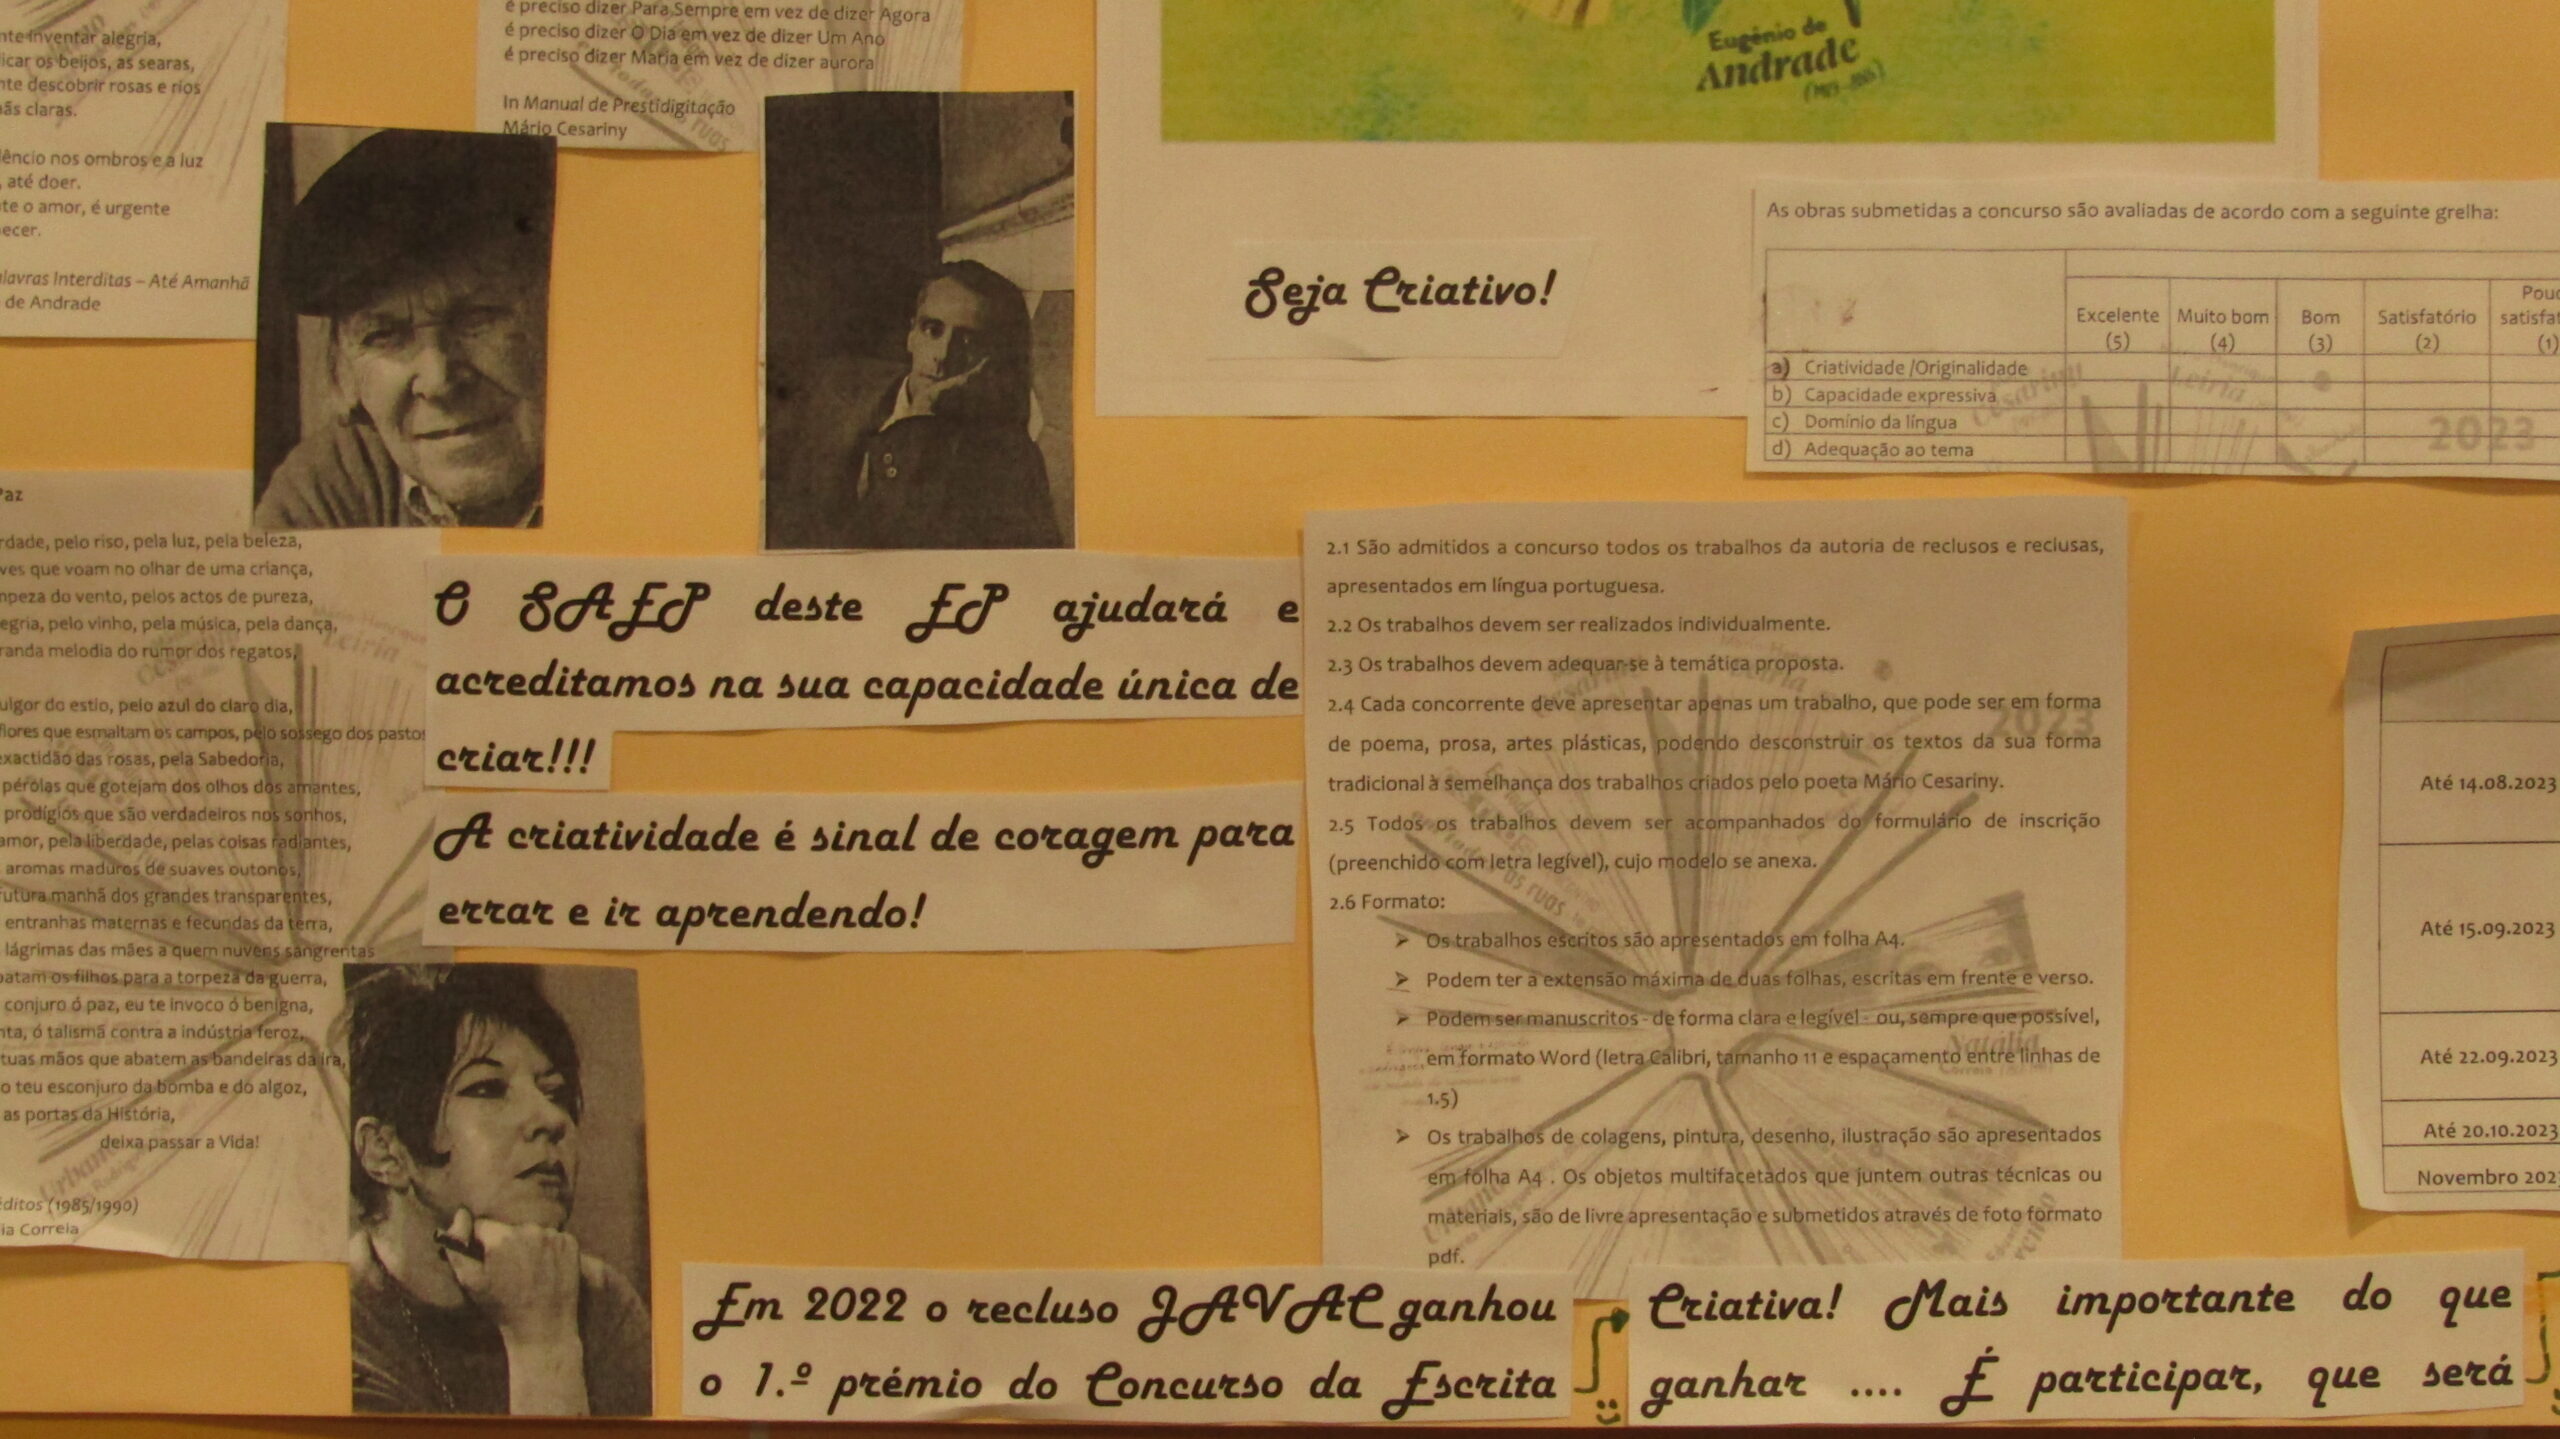 inventar alegria,
os beijos, as searas,
descobrir rosas e rios
claras.
nos ombros e a luz
até doer.
o amor, é urgente
Interditas – Até Amanhã
de Andrade
é preciso dizer Para Sempre em vez de dizer Agora
é preciso dizer O Dia em vez de dizer Um Ano
é preciso dizer Maria em vez de dizer aurora
In Manual de Prestidigitação
Mário Cesariny
Eugénio de
Andrade
Seja Criativo!
As obras submetidas a concurso são avaliadas de acordo com a seguinte grelha:
Excelente (5) Muito bom (4) Bom (3) Satisfatório (2) (1)
a) Criatividade /Originalidade
b) Capacidade expressiva
c) Domínio da língua
d) Adequação ao tema
2023
pelo riso, pela luz, pela beleza,
que voam no olhar de uma criança,
do vento, pelos actos de pureza,
pelo vinho, pela música, pela dança,
melodia do rumor dos regatos,
do estio, pelo azul do claro dia,
flores que esmaltam os campos, pelo sossego dos
das rosas, pela Sabedoria,
pérolas que gotejam dos olhos dos amantes,
prodígios que são verdadeiros nos sonhos,
amor, pela liberdade, pelas coisas radiantes,
aromas maduros de suaves outonos,
futura manhã dos grandes transparentes,
entranhas maternas e fecundas da terra,
lágrimas das mães a quem nuvens sangrentas
os filhos para a torpeza da guerra,
conjuro ó paz, eu te invoco ó benigna,
ó talismã contra a indústria feroz,
tuas mãos que abatem as bandeiras da ira,
o teu esconjuro da bomba e do algoz,
as portas da História,
deixa passar a Vida!
(1985/1990)
Correia
O SAEP deste EP ajudará e
acreditamos na sua capacidade única de
criar!!!
A criatividade é sinal de coragem para
errar e ir aprendendo!
2.1 São admitidos a concurso todos os trabalhos da autoria de reclusos e reclusas,
apresentados em língua portuguesa.
2.2 Os trabalhos devem ser realizados individualmente.
2.3 Os trabalhos devem adequar-se à temática proposta.
2.4 Cada concorrente deve apresentar apenas um trabalho, que pode ser em forma
de poema, prosa, artes plásticas, podendo desconstruir os textos da sua forma
tradicional à semelhança dos trabalhos criados pelo poeta Mário Cesariny.
2.5 Todos os trabalhos devem ser acompanhados do formulário de inscrição
(preenchido com letra legível), cujo modelo se anexa.
2.6 Formato:
➢ Os trabalhos escritos são apresentados em folha A4.
➢ Podem ter a extensão máxima de duas folhas, escritas em frente e verso.
➢ Podem ser manuscritos - de forma clara e legível - ou, sempre que possível,
em formato Word (letra Calibri, tamanho 11 e espaçamento entre linhas de
1.5)
➢ Os trabalhos de colagens, pintura, desenho, ilustração são apresentados
em folha A4 . Os objetos multifacetados que juntem outras técnicas ou
materiais, são de livre apresentação e submetidos através de foto formato
pdf.
Até 14.08.2023
Até 15.09.2023
Até 22.09.2023
Até 20.10.2023
Novembro
Em 2022 o recluso JAVAC ganhou
o 1.º prémio do Concurso da Escrita
Criativa! Mais importante do que
ganhar .... É participar, que será